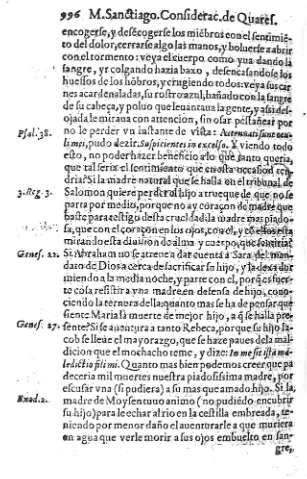 996 M. Sanctiago. Considerac. de Quares.
encogerse, y desécogerse los miébros con el sentimié-
to del dolor, cerrarse algo las manos, y boluerse a abrir
con el tormento: veya el cuerpo como yua dando la
sangre, y r colgando hazia baxo, desencasandose los
huessos de los hõbros, y crugiendo todos: veya sus car
nes acardenaladas, su rostro azul, bañado con la sangre
de su cabeça, y poluo que leuantaua la gente, y assi des-
ojada le miraua con attencion, sin osar pestañear por
Psal. 38. no le perder vn instante de vista: Attenuati sunt ocu
li mei, pudo dezir. Suspicientes in excelso. Y viendo todo
esto, no poder hazer beneficio a lo que tanto queria,
que tal seria el sentimiento que en esta occasiõ ten-
dria? Si la madre natural que se halla en el tribunal de
3. Reg. 3. Salomon quiere perder su hijo a trueque de que no se
parta por medio, porque no ay coraçon de madre que
baste para estigo desta crueldad la madre mas piado-
sa, que con el coraçon en los ojos, con el, y cõ ellos esta
mirando esta diuision de alma y cuerpo, que sentiria?
Genes. 22. Si Abraham no se atreue a dar cuenta a Sara del man-
dato de Dios acerca de sacrificar se hijo, y la dexa dur
miendo a la media noche, y parte con el, porq̃ es fuer-
te cosa resistir a vna madre en defensa de hijo, cono-
ciendo la ternera della, quanto mas se ha de pensar que
siente Maria la muerte de mejor hijo, a q̃ se halla pre-
Genes. 27. sente? Si se auentura a tanto Rebeca, porque su hijo Ia-
cob se lleue el mayorazgo, que se haze paues de la mal
dicion que el mochacho teme, y dize: In me sit ista ma-
ledictio fili mi. Quanto mas bien podemos creer que pa
deceria mil muertes nuestra piadosissima madre, por
escusar vna (si pudiera) a su mas que amado hijo. Si la
Exod. 2. madre de Moysen tuuo animo (no pudiẽdo encubrir
su hijo) para le echar al rio en la cestilla embreada, te-
niendo por menor daño el auenturarle a que muriera
en agua que verle morir a sus ojos embuelto en san-
gre,